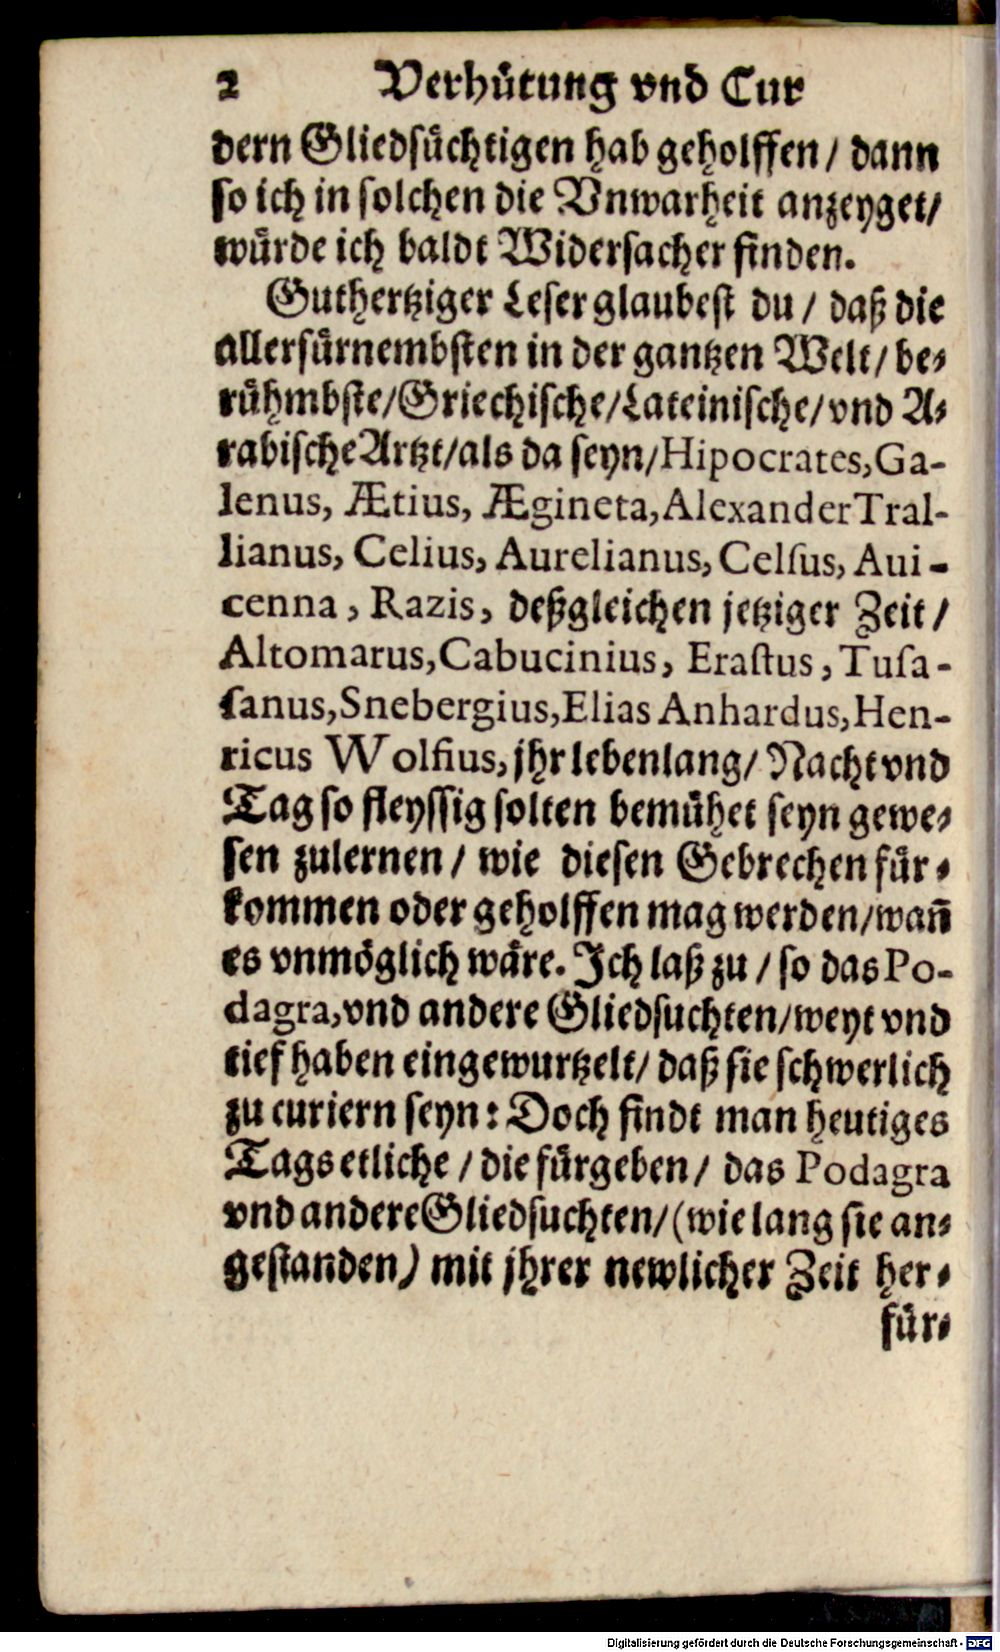 2 Verhütung vnd Cur
dern Gliedsüchtigen hab geholffen / dann
so ich in solchen die Vnwarheit anzeyget/
würde ich baldt Widersacher finden.
Guthertziger Leser glaubest du / daß die
allerfürnembsten in der gantzen Welt / be-
rühmbste/Griechische/Lateinische/vnd A-
rabische Artzt/als da seyn/Hipocrates, Ga-
lenus, Ætius, Ægineta, Alexander Tral-
lianus, Celius, Aurelianus, Celsus, Aui-
cenna, Razis, deßgleichen jetziger Zeit /
Altomarus, Cabucinius, Erastus, Tusa-
sanus, Snebergius, Elias Anhardus, Hen-
ricus Wolfius, jhr lebenlang/ Nacht vnd
Tag so fleyssig solten bemühet seyn gewe-
sen zulernen / wie diesen Gebrechen für-
kommen oder geholffen mag werden/wañ
es vnmöglich wäre. Ich laß zu / so das Po-
dagra, vnd andere Gliedsuchten/weyt vnd
tief haben eingewurtzelt/ daß sie schwerlich
zu curiern seyn: Doch findt man heutiges
Tags etliche / die fürgeben/ das Podagra
vnd andere Gliedsuchten/(wie lang sie an-
gestanden) mit jhrer newlicher Zeit her-
für-
Digitalisierung gefördert durch die Deutsche Forschungsgemeinschaft - DFG